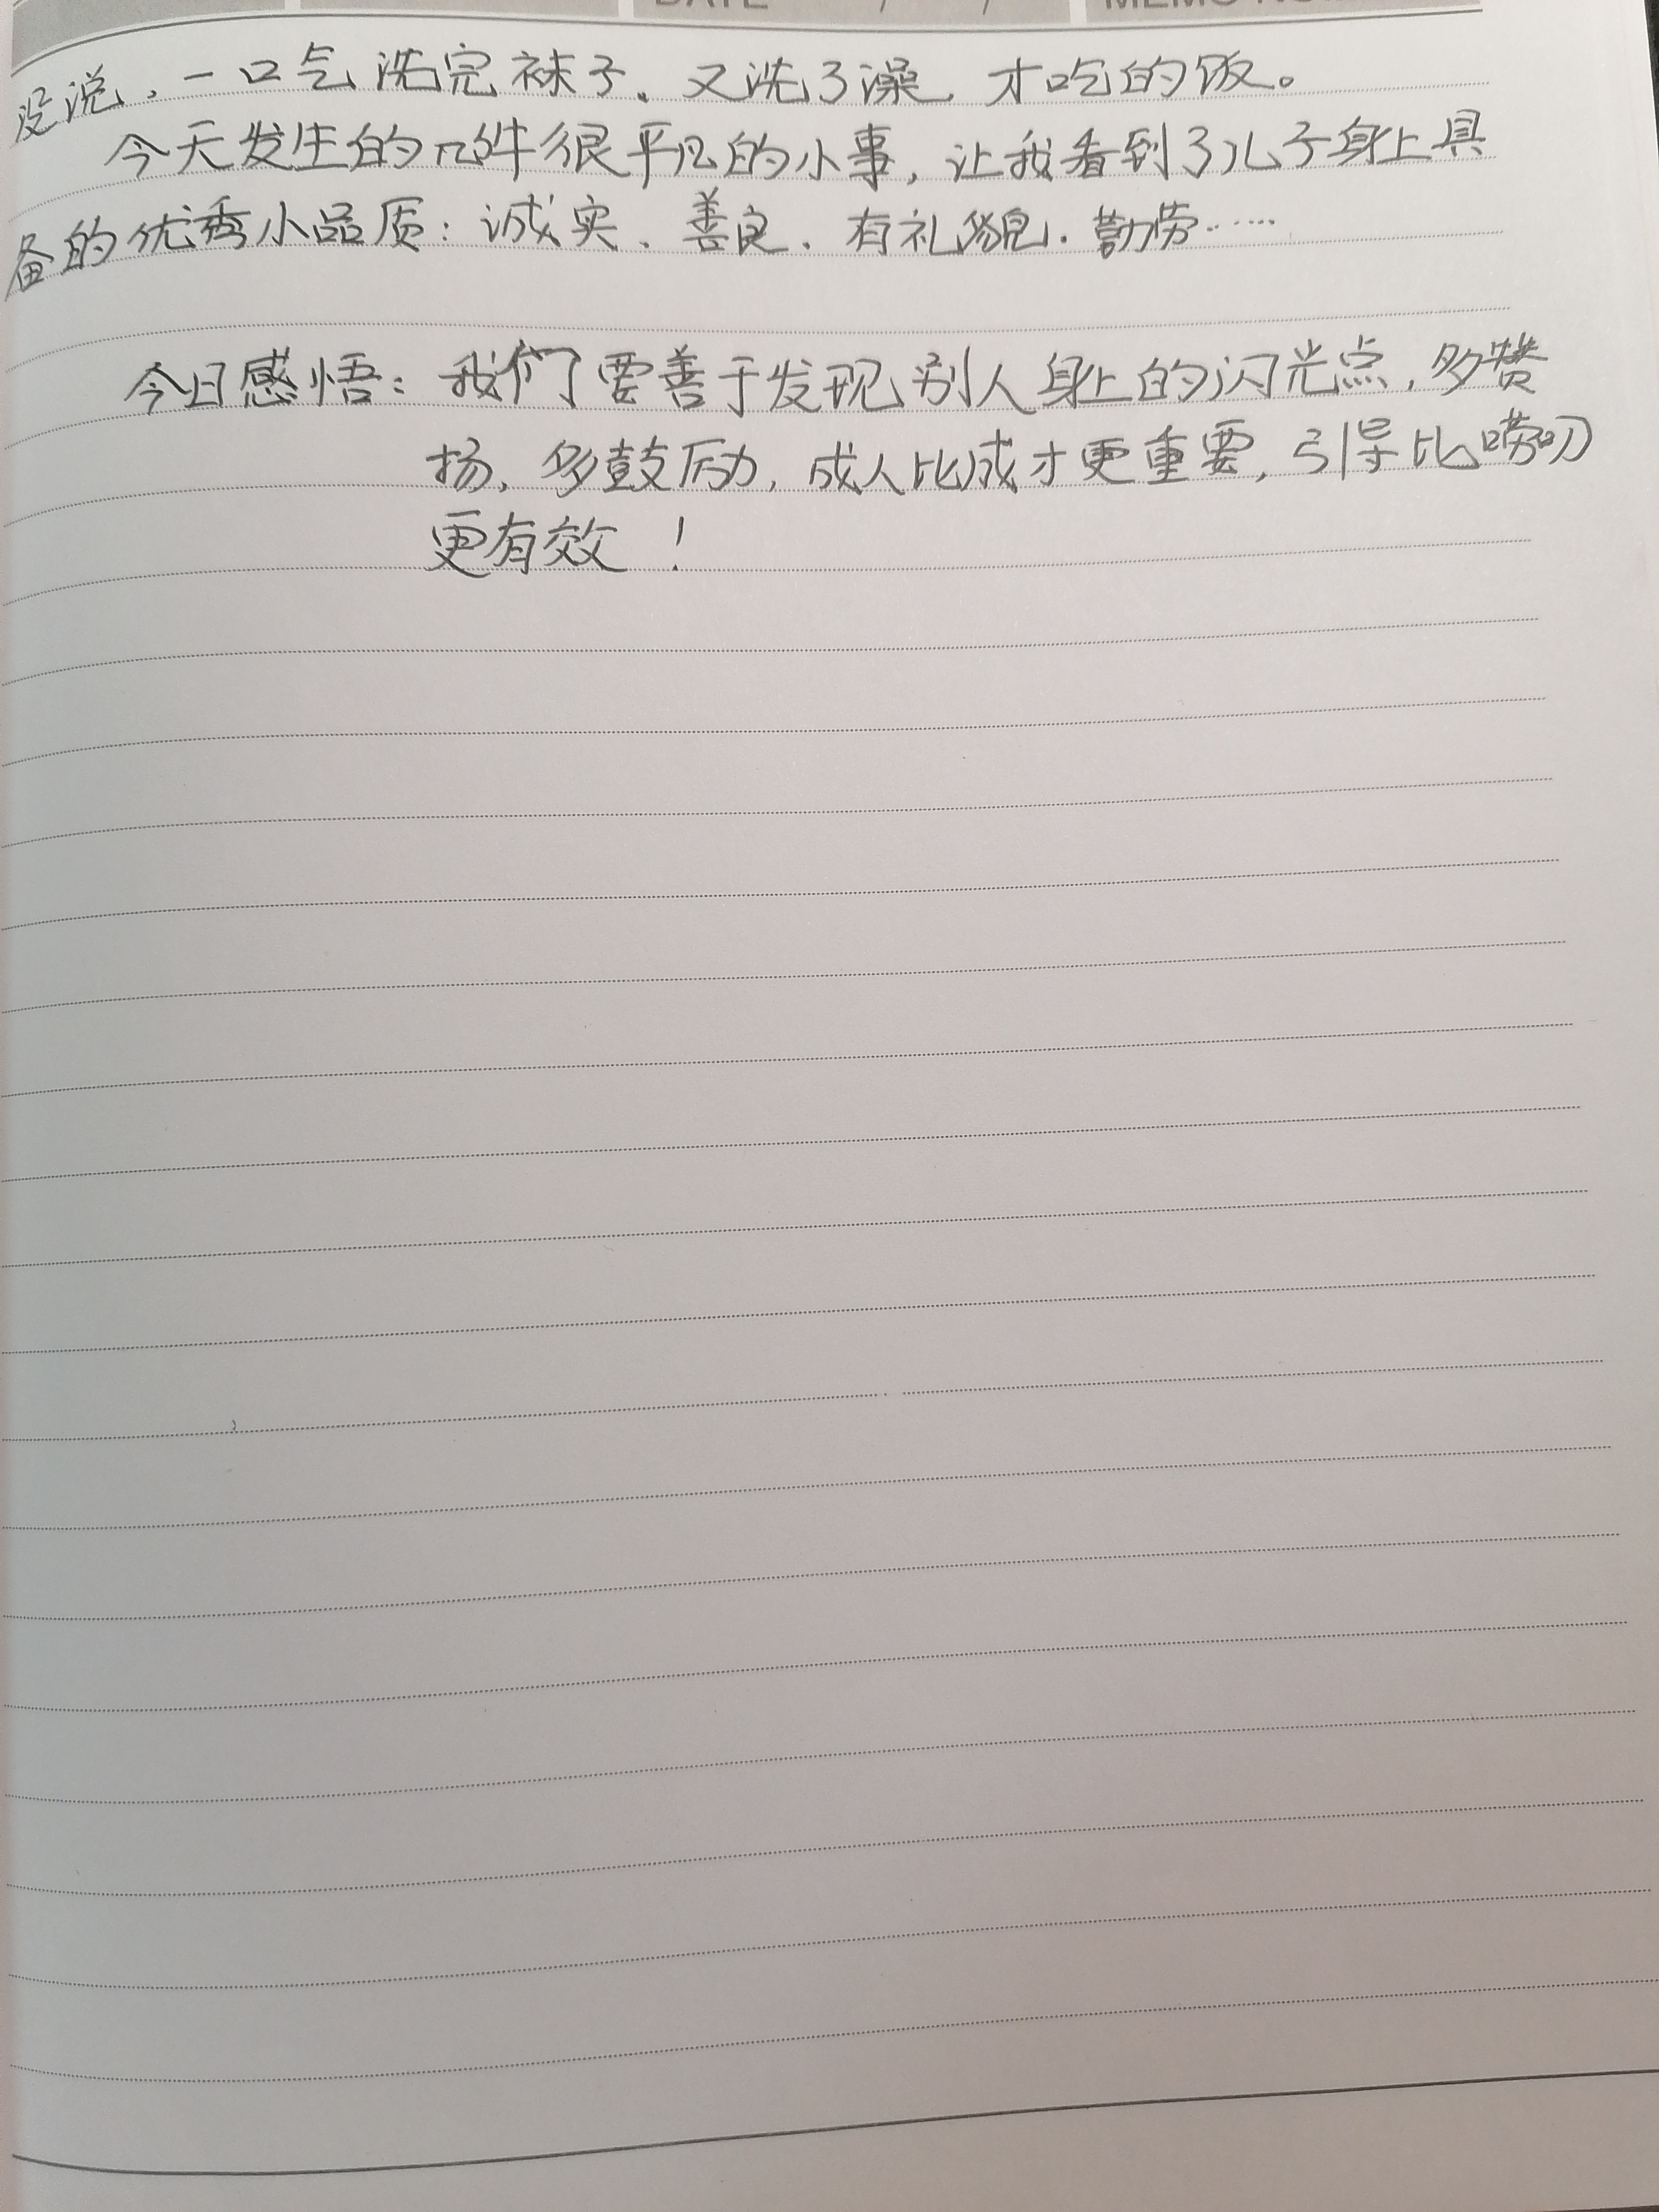 没说，一口气洗完袜子。又洗了澡，才吃的饭。
今天发生的几件很平凡的小事，让我看到了儿子身上具
备的优秀小品质：诚实、善良、有礼貌、勤劳……
今日感悟：我们要善于发现别人身上的闪光点，多赞
扬，多鼓励，成人比成才更重要，引导比唠叨
更有效！